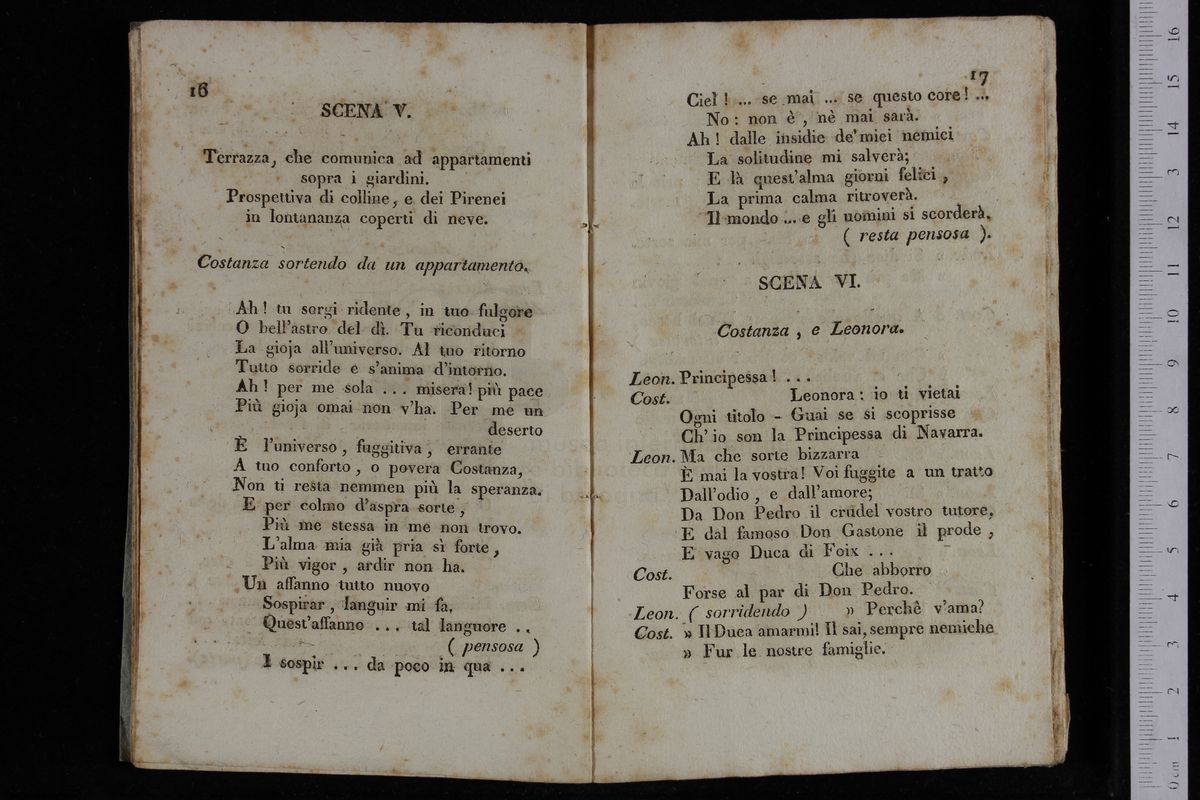 16
SCENA V.
Terrazza, che comunica ad appartamenti
sopra i giardini.
Prospettiva di colline, e dei Pirenei
in lontananza coperti di neve.
Costanza sortendo da un appartamento.
Ah! tu sorgi ridente, in tuo fulgore
O bell'astro del dì. Tu riconduci
La gioja all'universo. Al tuo ritorno
Tutto sorride e s'anima d'intorno.
Ah! per me sola ... misera! più pace
Più gioja omai non v'ha. Per me un
deserto
È l'universo, fuggitiva, errante
A tuo conforto, o povera Costanza,
Non ti resta nemmen più la speranza.
E per colmo d'aspra sorte,
Più me stessa in me non trovo.
L'alma mia già pria sì forte,
Più vigor, ardir non ha.
Un affanno tutto nuovo
Sospirar, languir mi fa.
Quest'affanno ... tal languore ..
( pensosa )
I sospir ... da poco in qua ...
17
Ciel! ... se mai ... se questo core! ...
No: non è, nè mai sarà.
Ah! dalle insidie de' miei nemici
La solitudine mi salverà;
E là quest'alma giorni felici,
La prima calma ritroverà.
Il mondo ... e gli uomini si scorderà.
( resta pensosa ).
SCENA VI.
Costanza, e Leonora.
Leon. Principessa! ...
Cost. Leonora: io ti vietai
Ogni titolo - Guai se si scoprisse
Ch' io son la Principessa di Navarra.
Leon. Ma che sorte bizzarra
È mai la vostra! Voi fuggite a un tratto
Dall'odio, e dall'amore;
Da Don Pedro il crudel vostro tutore,
E dal famoso Don Gastone il prode,
E vago Duca di Foix ...
Cost. Che abborro
Forse al par di Don Pedro.
Leon. ( sorridendo ) » Perchê v'ama?
Cost. » Il Duca amarmi! Il sai, sempre nemiche
» Fur le nostre famiglie.
0 cm 1 2 3 4 5 6 7 8 9 10 11 12 13 14 15 16